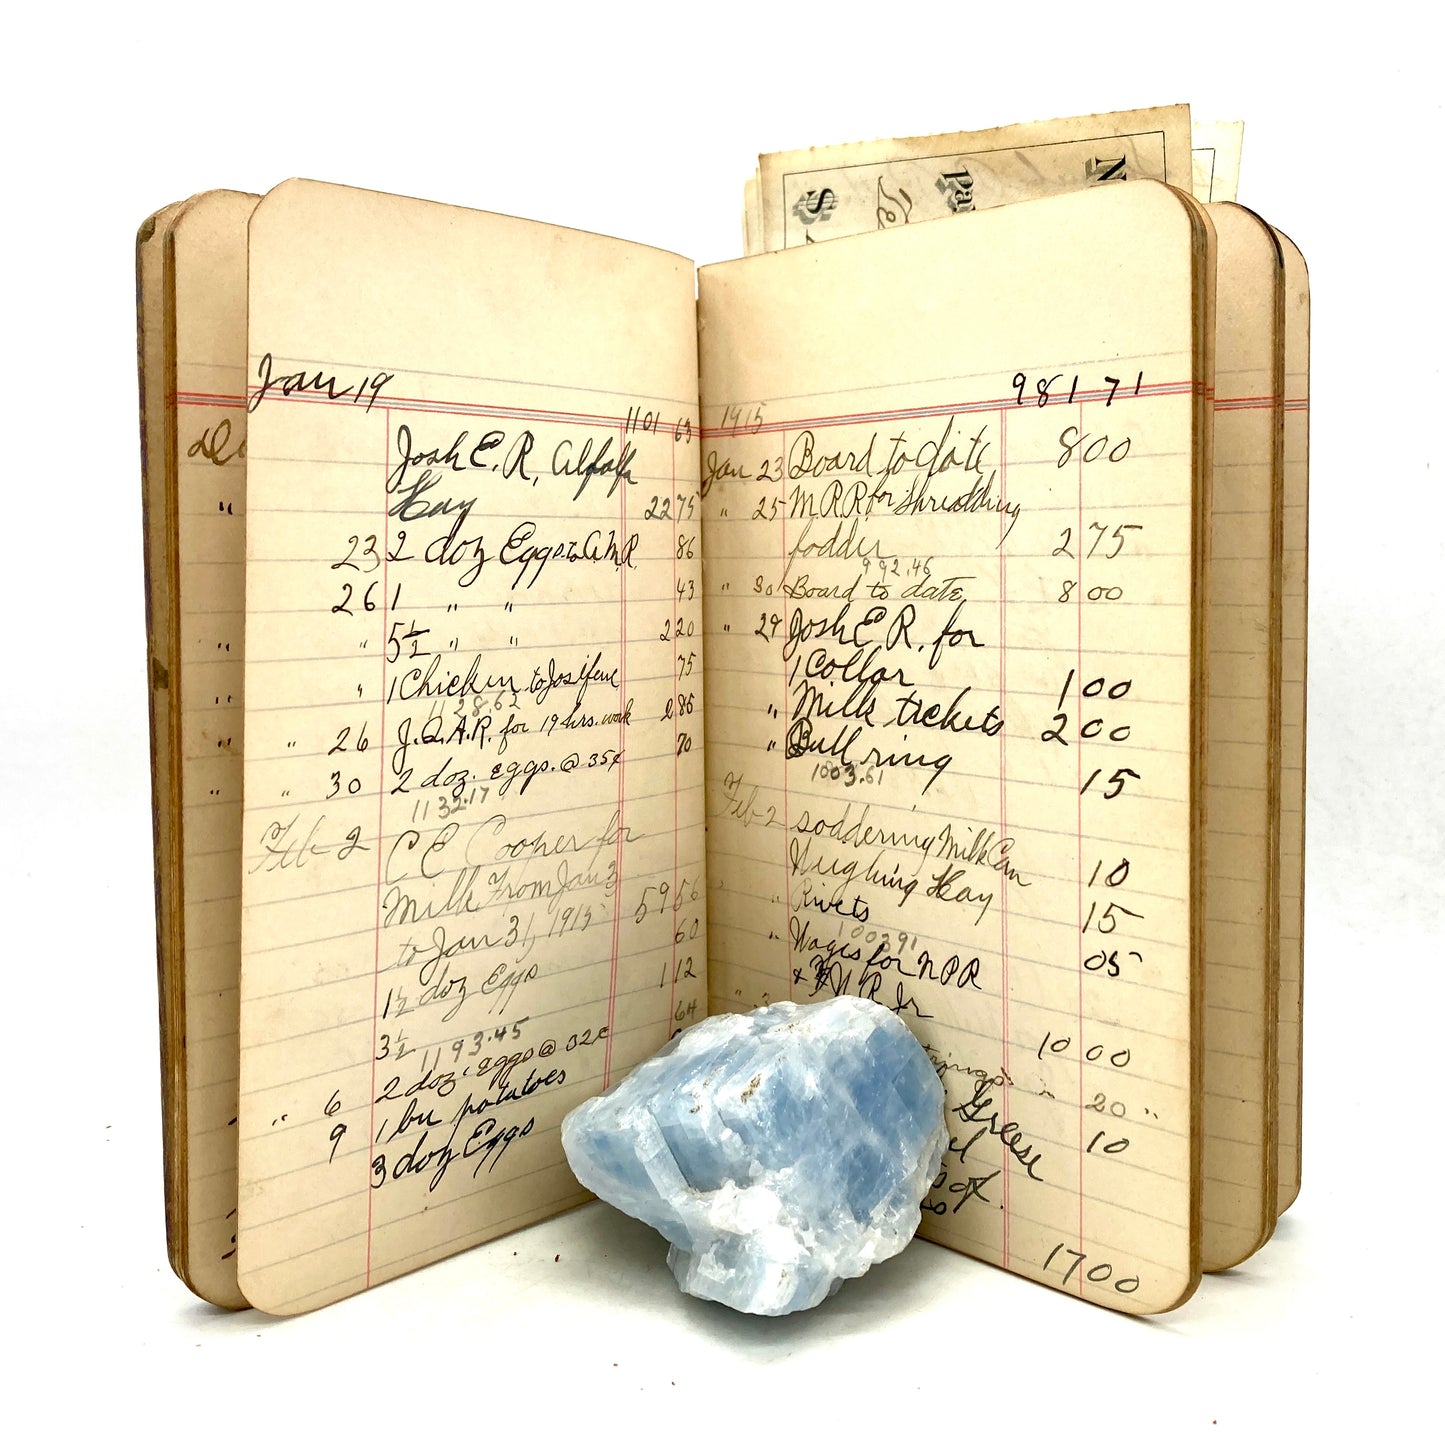 Jan 19
1101 63
Josh E. R. Alfalfa
Hay 22 75
23 2 doz Eggs to A.M.R. 86
26 1 " " 43
" 5 1/2 " " 2 20
" 1 Chicken to Josifene 75
1128.62
" 26 J.Q.A.R. for 19 hrs. work 2 85
" 30 2 doz. eggs. @ 35¢ 70
1132.17
Feb 2 C E Cooper for
Milk From Jan 3
to Jan 31, 1915 59 56
1 1/2 doz Eggs 60
3 1/2 1 12
1193.45
" 6 2 doz. eggs @ 32¢ 64
9 1 bu potatoes
3 doz Eggs
981 71
1915
Jan 23 Board to date 8 00
" 25 M.R.R. for Shredding
fodder 2 75
992.46
" 30 Board to date 8 00
" 29 Josh E R. for
1 Collar 1 00
" Milk tickets 2 00
" Bull ring 15
1003.61
Feb 2 soddering Milk Can 10
Weighing Hay 15
" Rivets 05
1003 91
" Wages for N P R
& W R Jr
10 00
" 20 "
Greese 10
17 00
De
N
pa
$